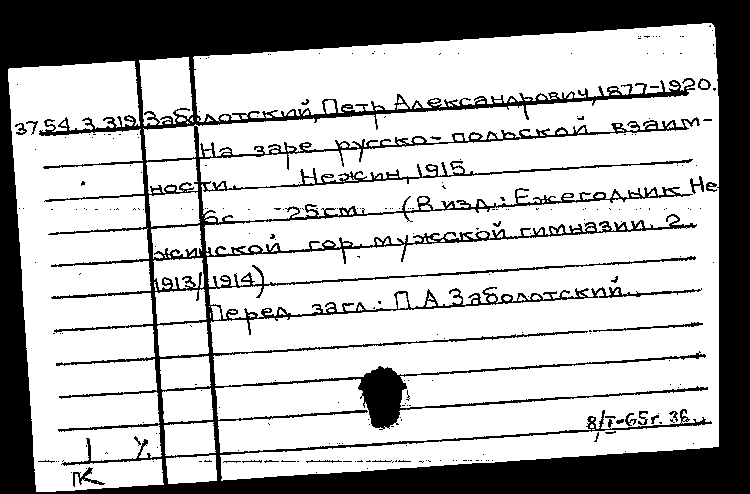 37.54.3.319 Заболотский, Петр Александрович, 1877-1920.
На заре русско-польской взаим-
ности. Нежин, 1915.
6с 25см. (В изд.: Ежегодник Не
жинской гор. мужской гимназии. 2.
1913/1914).
Перед загл.: П.А. Заболотский.
8/I-65г. ЗБ.
1 У.
К